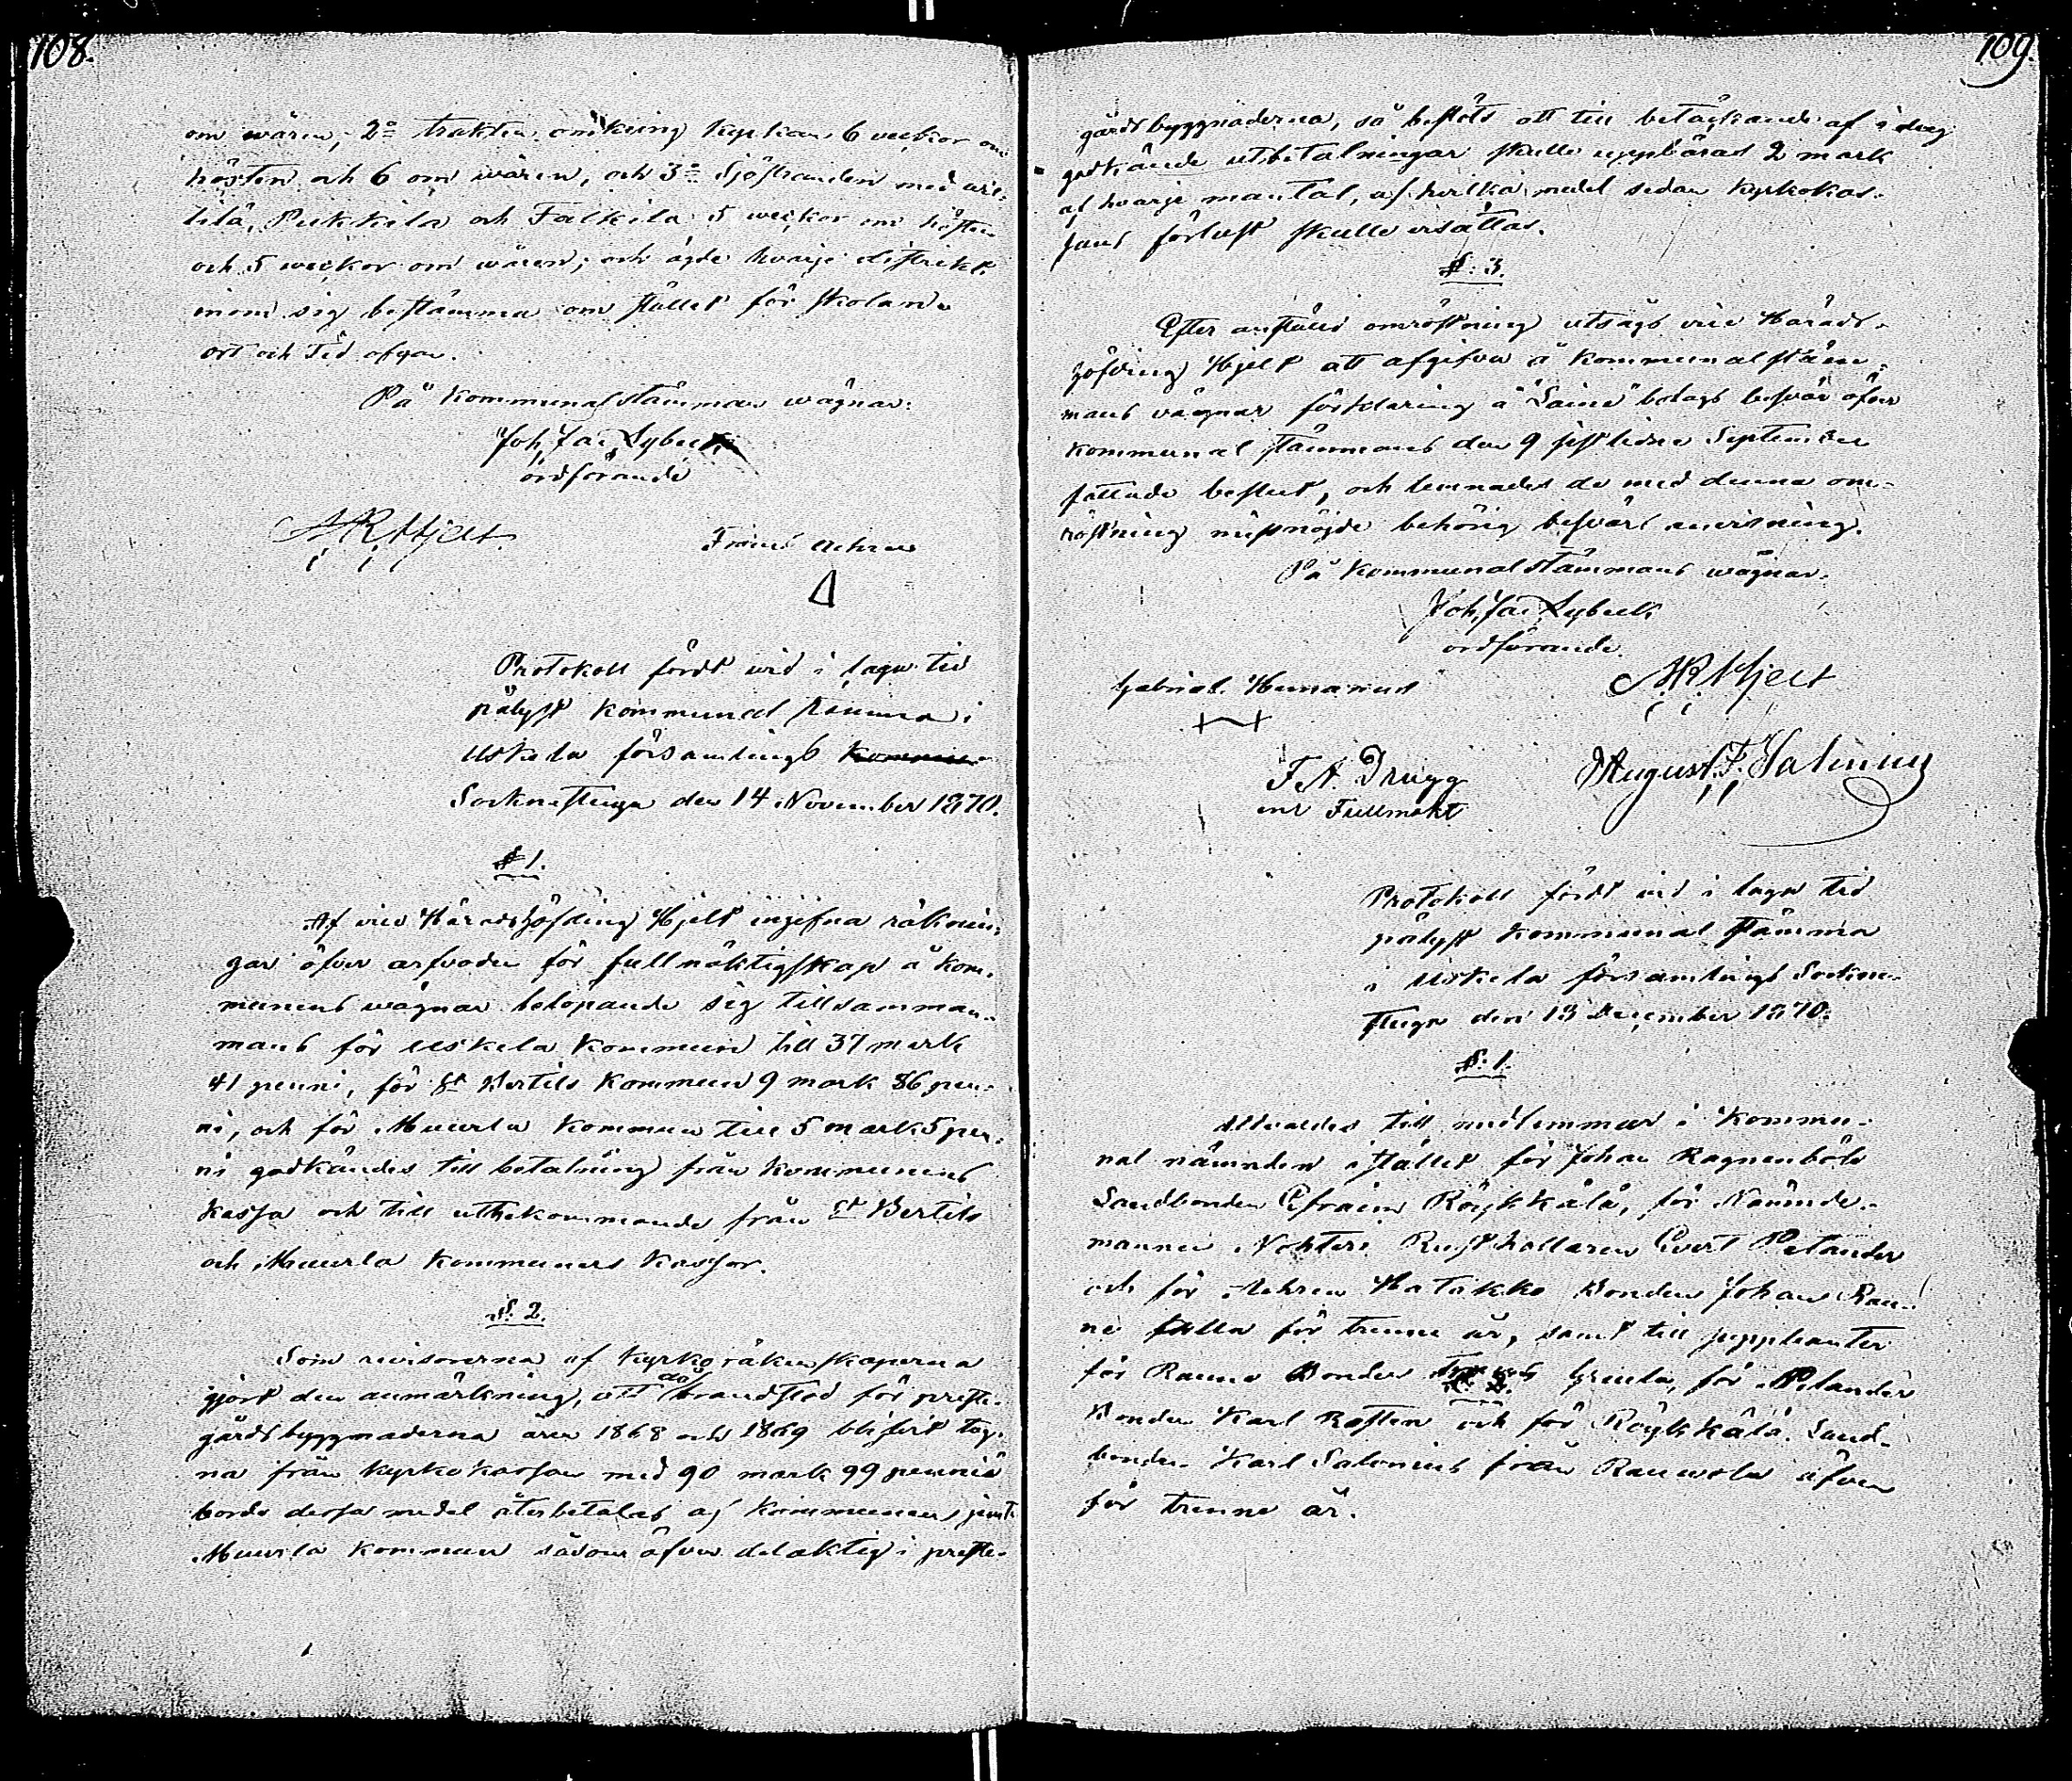 108.
om wåren, 2º trakten omkring Kyrkan 6 veckor om
hösten och 6 om wåren, och 3º Sjöstranden med
Pukkila och Falkila 5 weckor om hösten
och 5 weckor om wåren; och ägde hwarje distrikt
inom sig bestämma om stället för skolan
ort och Tid ofvan.
På Kommunalstämmans wägnar:
Joh. Jac. Lybeck
ordförande
A R Hjelt
Frans Achren
Protokoll fördt wid i laga tid
pålyst Kommunal stämma i
Uskela församlings
Sockenstuga den 14 November 1870.
§ 1.
Af vice Häradshöfding Hjelt ingifna räknin-
gar öfver arfvoden för fullmäktigskap å Kom-
munens wägnar belöpande sig tillsamman-
mans för Uskela Kommun till 37 mark
41 penni, för St Bertils Kommun 9 mark 86 pen-
ni, och för Muurla Kommun till 5 mark 5 pen-
ni godkändes till betalning från Kommunens
Kassa och till uthekommande från St Bertils
och Muurla Kommuners Kassor.
§. 2.
Som revisorerna af Kyrkoräkenskaperna
gjort den anmärkning, att brandstod för preste-
gårdsbyggnaderna åren 1868 och 1869 blifvit tag-
na från Kyrkokassan med 90 mark 99 penniä
borde dessa medel återbetalas af Kommunen jemte
Muurla Kommun såsom äfven delaktig i preste-
109.
gårdsbyggnaderna, så beslöts att till betäckande af i dag
godkände utbetalningar skulle uppbäras 2 mark
af hvarje mantal, af hvilka medel sedan Kyrkokas-
sans förlust skulle ersättas.
§. 3.
Efter anstäld omröstning utsågs vice Härads-
höfding Hjelt att afgifva å Kommunalstäm-
mans vägnar förklaring å Saine bolags besvär öfver
Kommunal stämmans den 9 sistledne September
fattade beslut, och lemnades de med denna om-
röstning missnöjde behörig besvärs anvisning.
På Kommunalstämmans wägnar.
Joh. Jac. Lybeck
ordförande.
A R Hjelt
Gabriel
F. A. Drugg
enl Fullmakt
August. F. Salenius
Protokoll fördt wid i laga tid
pålyst Kommunal stämma
i Uskela församlings Socken-
stuga den 13 December 1870.
§. 1.
Utvaldes till medlemmar i Kommu-
nal nämnden i stället för Johan Ragnenböle
Landbonden Efraim Röykkälä, för Nämnde-
mannen Nohteri Rusthollaren Evert Pelander
och för Achren Hatakka Bonden Johan Rau-
ne för trenne år, samt till suppleanter
för Raune Bonden Grenla, för Pelander
Bonden Karl Rosten och för Röykkälä Land-
bonden Karl Salonius från Rauwola äfven
för trenne år.